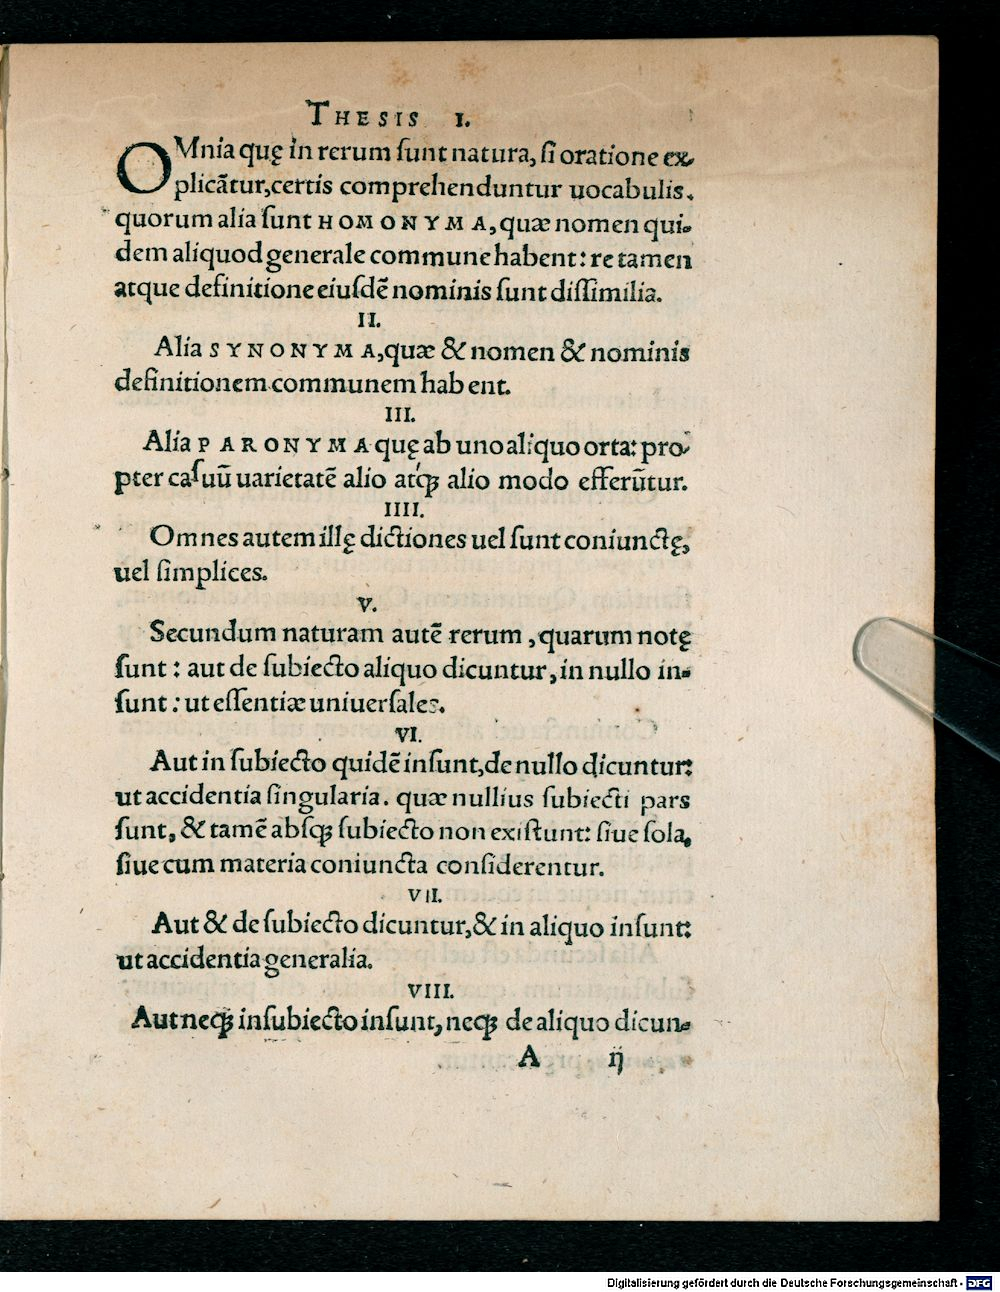 THESIS I.
OMnia quę in rerum ſunt natura, ſi oratione ex-
plicãtur, certis comprehenduntur uocabulis.
quorum alia ſunt HOMONYMA, quæ nomen qui-
dem aliquod generale commune habent: re tamen
atque definitione eiuſdẽ nominis ſunt diſſimilia.
II.
Alia SYNONYMA, quæ & nomen & nominis
definitionem communem habent.
III.
Alia PARONYMA quę ab uno aliquo orta: pro-
pter caſuũ uarietatẽ alio atq́ꝫ alio modo efferũtur.
IIII.
Omnes autem illę dictiones uel ſunt coniunctę,
uel ſimplices.
V.
Secundum naturam autẽ rerum, quarum notę
ſunt: aut de ſubiecto aliquo dicuntur, in nullo in-
ſunt: ut eſſentiæ uniuerſales.
VI.
Aut in ſubiecto quidẽ inſunt, de nullo dicuntur:
ut accidentia ſingularia. quæ nullius ſubiecti pars
ſunt, & tamẽ abſqꝫ ſubiecto non exiſtunt: ſiue ſola,
ſiue cum materia coniuncta conſiderentur.
VII.
Aut & de ſubiecto dicuntur, & in aliquo inſunt:
ut accidentia generalia.
VIII.
Aut neqꝫ in ſubiecto inſunt, neqꝫ de aliquo dicun-
A ij
Digitalisierung gefördert durch die Deutsche Forschungsgemeinschaft - DFG